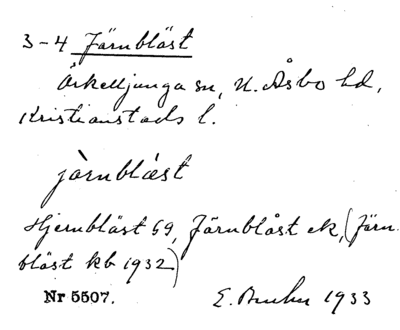 3-4 Järnbläst
Örkelljunga sn, N. Åsbo hd,
Kristianstads l.
jàrnblǽst
Hjernbläst 69, Järnblåst ek, (Järn-
bläst kb 1932)
Nr 5507. E. 1933